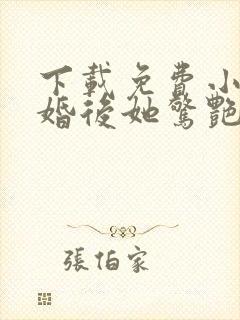 下載免費小
婚後她驚艷
張伯家